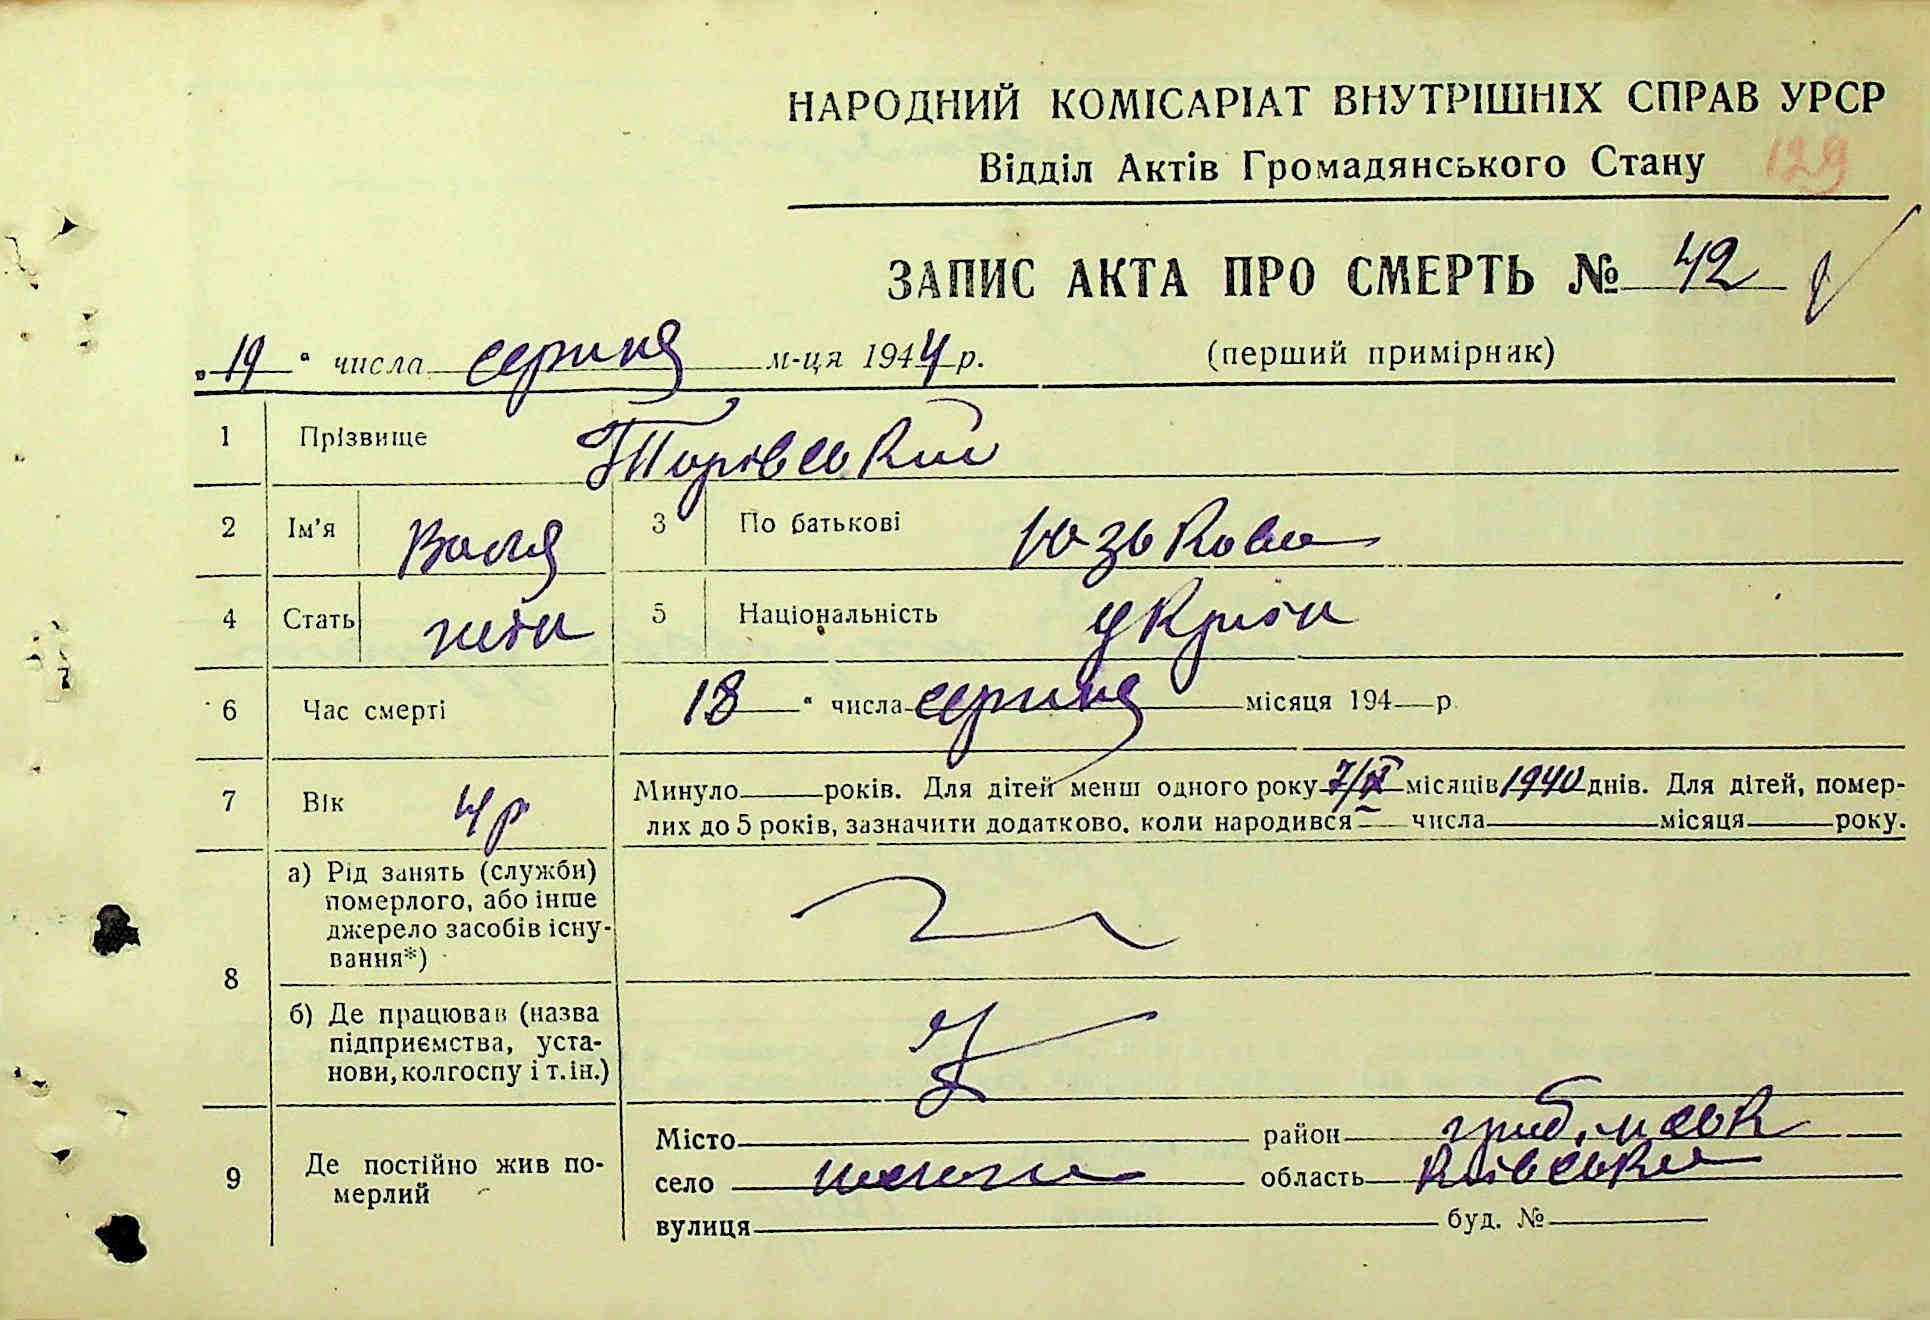 НАРОДНИЙ КОМІСАРІАТ ВНУТРІШНІХ СПРАВ УРСР
Відділ Актів Громадянського Стану 129
ЗАПИС АКТА ПРО СМЕРТЬ № 42
„19" числа серпня м-ця 1944 р.
(перший примірник)
1 Прізвище
2 Ім'я Валя 3 По батькові Юзькова
4 Стать жін 5 Національність україн
6 Час смерті 18" числа серпня місяця 194 р
7 Вік 4р Минуло років. Для дітей менш одного року 7/ місяців 1940 днів. Для дітей, помер-
лих до 5 років, зазначити додатково, коли народився числа місяця року.
8 а) Рід занять (служби)
померлого, або інше
джерело засобів існу-
вання*)
б) Де працював (назва
підприємства, уста-
нови, колгоспу і т.ін.)
9 Де постійно жив по-
мерлий
Місто район
село область Київська
вулиця буд. №